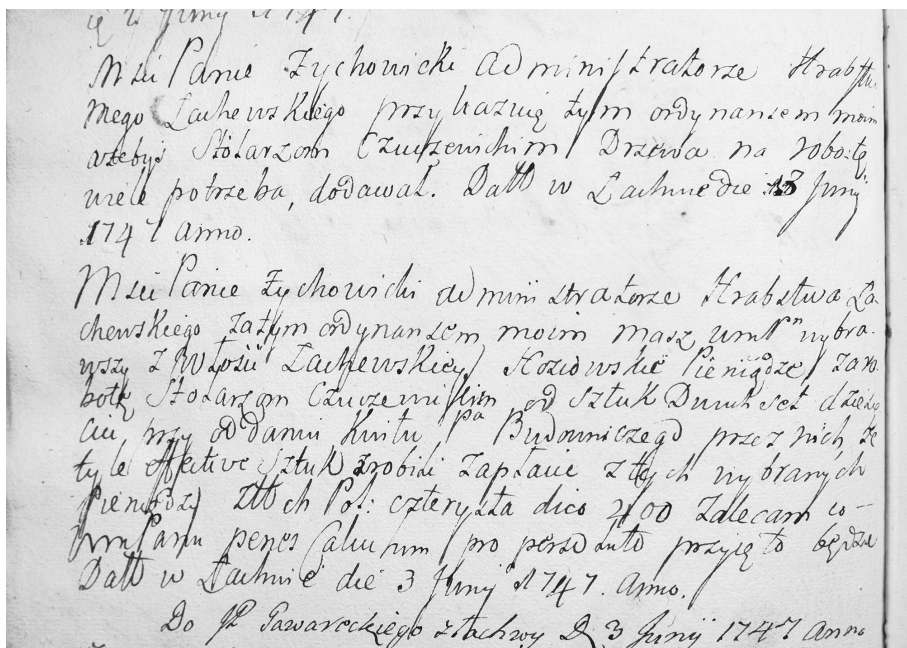 Junij 1747.
Msci Panie Zychowicki administratorze Hrabstwa
mego Lachewskiego przykazuię tym ordynansem moim
ażebyś Stolarzom Czuczewickim Drzewa na robotę
wiele potrzeba, dodawał. Datt w Lachwie die 13 Junij
1747 anno.
Msci Panie Zychowicki administratorze Hrabstwa La
chewskiego za tym ordynansem moim masz wmPn wybra
wszy z Włości Lachewskiey Koziowskie Pieniądze zaro
botę Stolarzom Czuczewickim od sztuk Dwuchset dziesię
ciu, przy oddaniu kwitu Pa Budowniczego przez nich, że
tyle effective sztuk zrobili zapłacić z tych wybranych
Pieniędzy Złłch Pol: czterysta dico 400 zalecam co
wmPanu penes Calculum pro persoluto przyięto będzie
Datt w Lachwie die 3 Junij 1747. Anno.
Do JP Pawareckiego z Lachwy D 3 Junij 1747 Anno